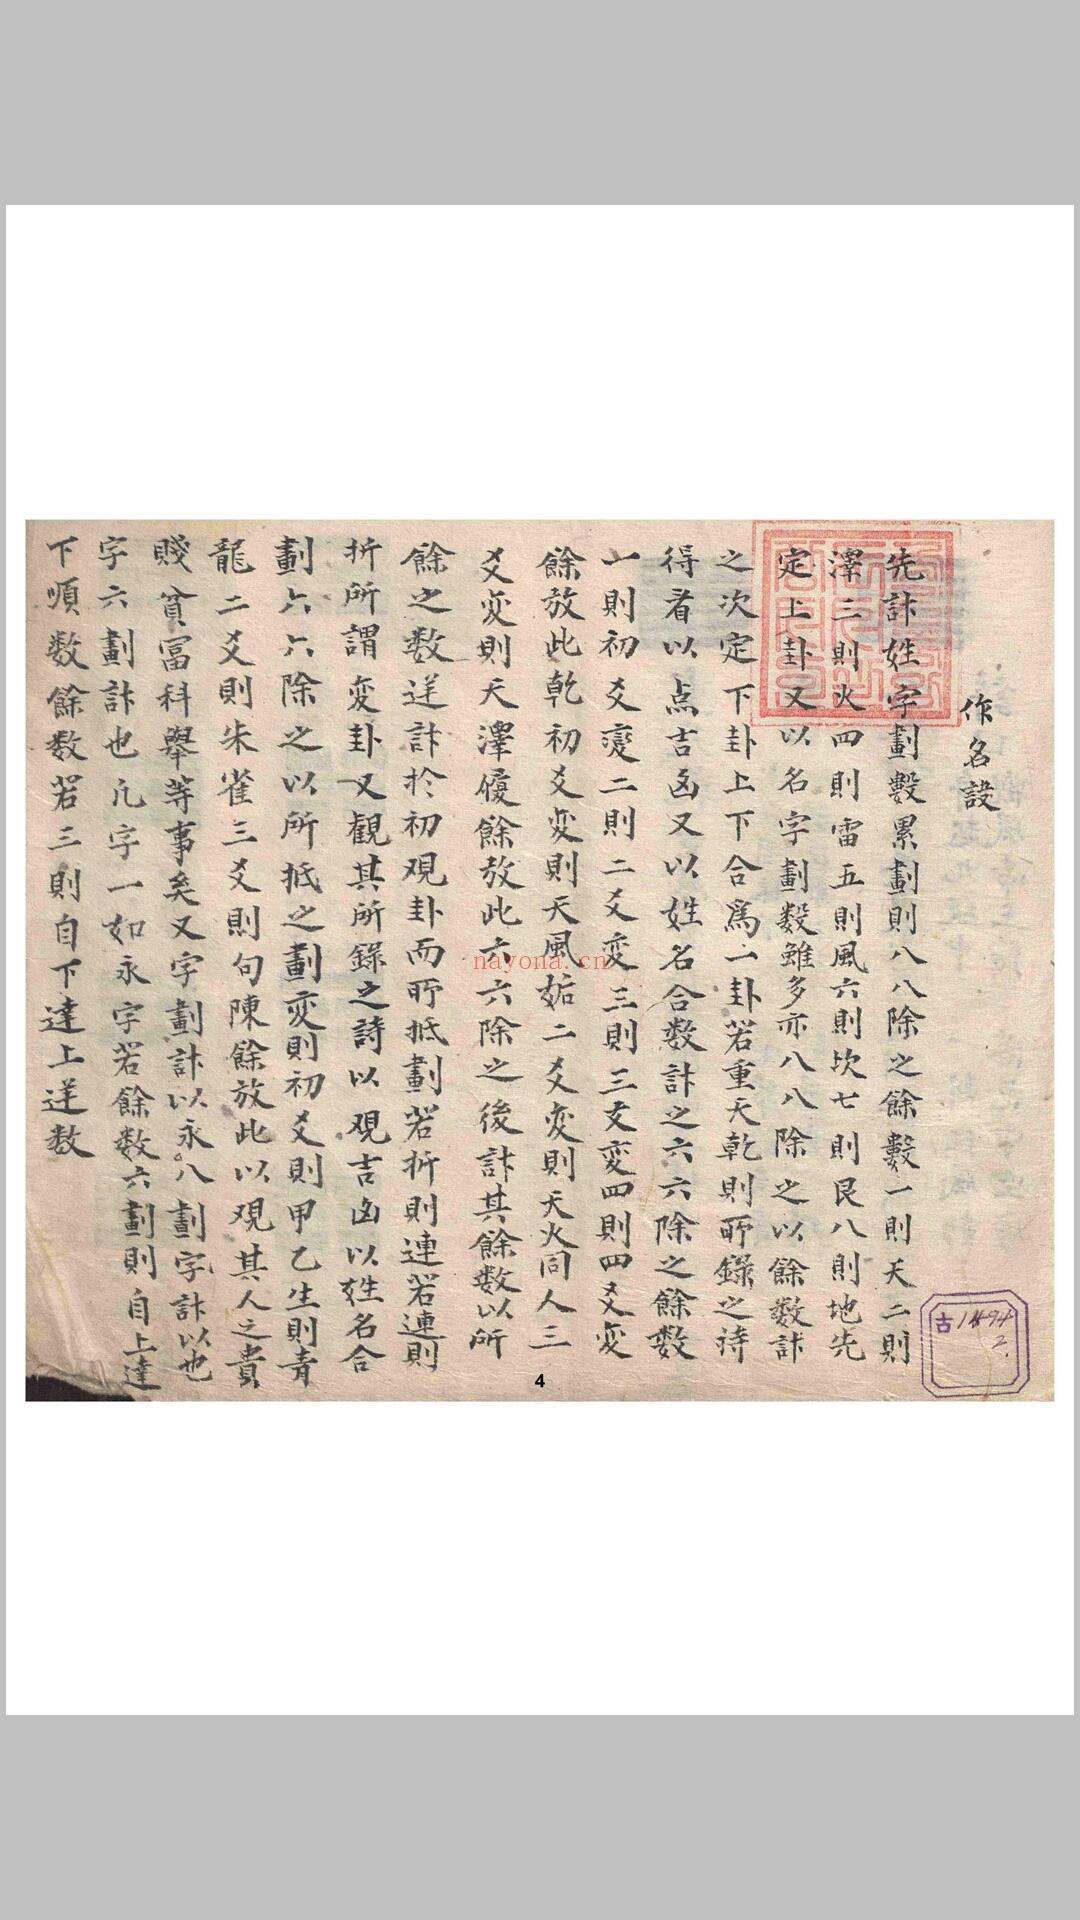 作名設
先計姓字劃數累劃則八八除之餘數一則天二則
澤三則火四則雷五則風六則坎七則艮八則地先
定上卦又以名字劃数雖多亦八八除之以餘数計
之次定下卦上下合爲一卦若重天乾則所錄之詩
得看以点吉凶又以姓名合数計之六六除之餘数
一則初爻變二則二爻変三則三爻変四則四爻変
餘放此乾初爻変則天風姤二爻変則天火同人三
爻変則天澤履餘放此六六除之後計其餘数以所
餘之数逆計於初观卦而所抵劃若折則連若連則
折所謂変卦又觀其所錄之詩以观吉凶以姓名合
劃六六除之以所抵之劃変則初爻則甲乙生則青
龍二爻則朱雀三爻則句陳餘放此以观其人之貴
賤貧富科舉等事矣又字劃計以永八劃字計以也
字六劃計也凡字一如永字若餘数六劃則自上達
下順数餘数若三則自下達上逆数
古1494
2.
nayona.cn
4